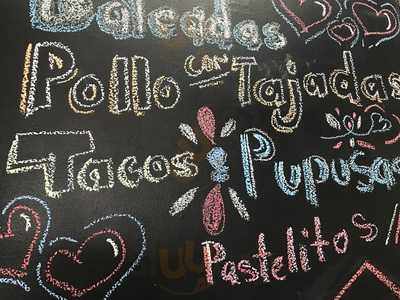 Baleadas
Pollo con Tajadas
Tacos Pupusas
Pastelitos